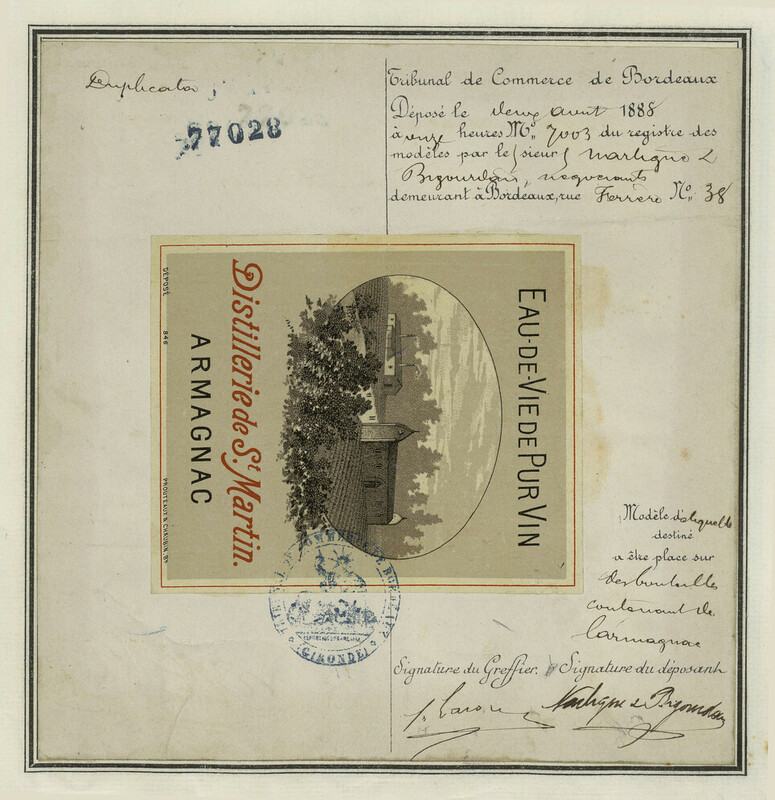 Duplicata
77028
Tribunal de Commerce de Bordeaux
Déposé le deux août 1888
à onze heures N° 7003 du registre des
modèles par le sieur Martigne &
Bigourdan, négociants
demeurant à Bordeaux, rue Ferrère N° 38
EAU-DE-VIE DE PUR VIN
Distillerie de St Martin.
ARMAGNAC
DÉPOSÉ 846
PROUTEAUX & CHAUBIN, Bx
Modèle d'étiquette
destiné
a être place sur
des bouteilles
contenant de
l'armagnac
TRIBUNAL DE COMMERCE DE BORDEAUX
(GIRONDE)
Signature du Greffier. Signature du déposant